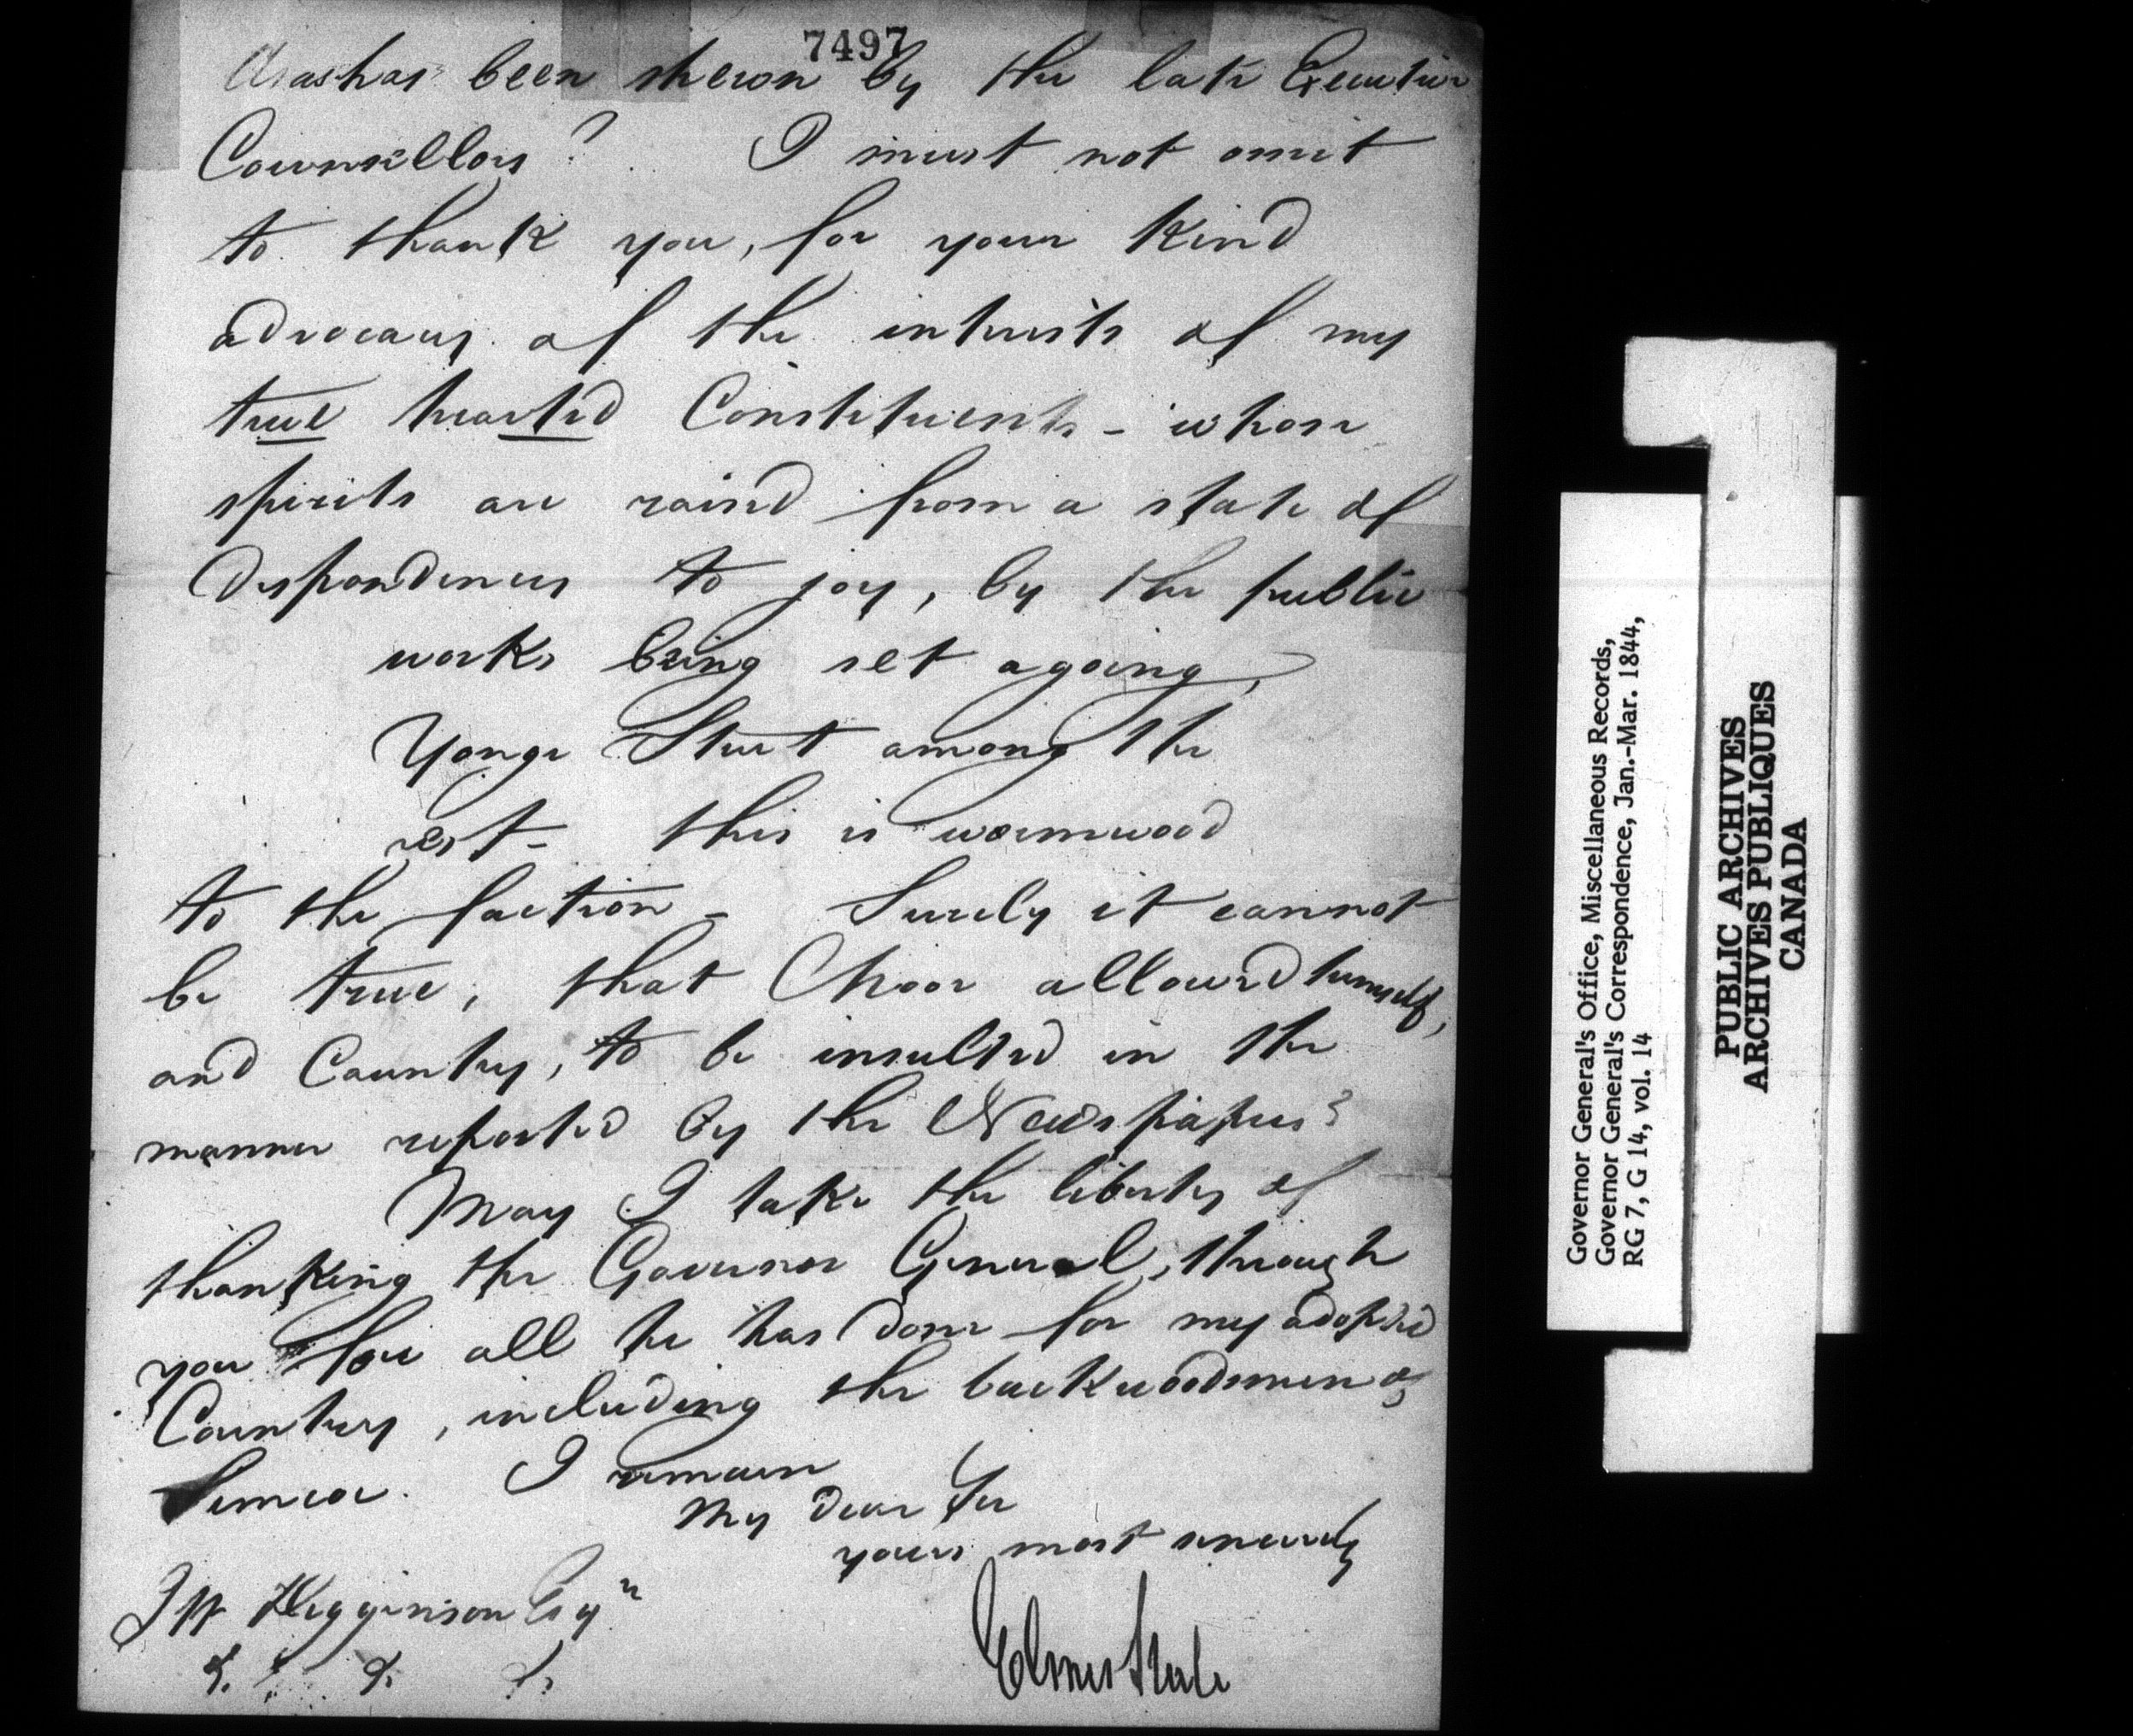 7497
as has been shewn by the late Executive
Counsellors? I must not omit
to thank you, for your kind
advocacy of the interests of my
true hearted Constituents - whose
spirits are raised from a state of
Despondency to joy, by the public
works being set agoing,
Yonge Street among the
rest - this is wormwood
to the faction - Surely it cannot
be true, that Moor allowed himself,
and Country, to be insulted in the
manner reported by the Newspapers?
May I take the liberty of
thanking the Governor General, through
you for all he has done for my adopted
Country, including the backwoodsmen of
Simcoe. I remain
My Dear Sir
yours most sincerely
Elmes Steele
Higginson Esqr
&. &. &.
Governor General's Office, Miscellaneous Records,
Governor General's Correspondence, Jan.-Mar. 1844,
RG 7, G 14, vol. 14
PUBLIC ARCHIVES
ARCHIVES PUBLIQUES
CANADA